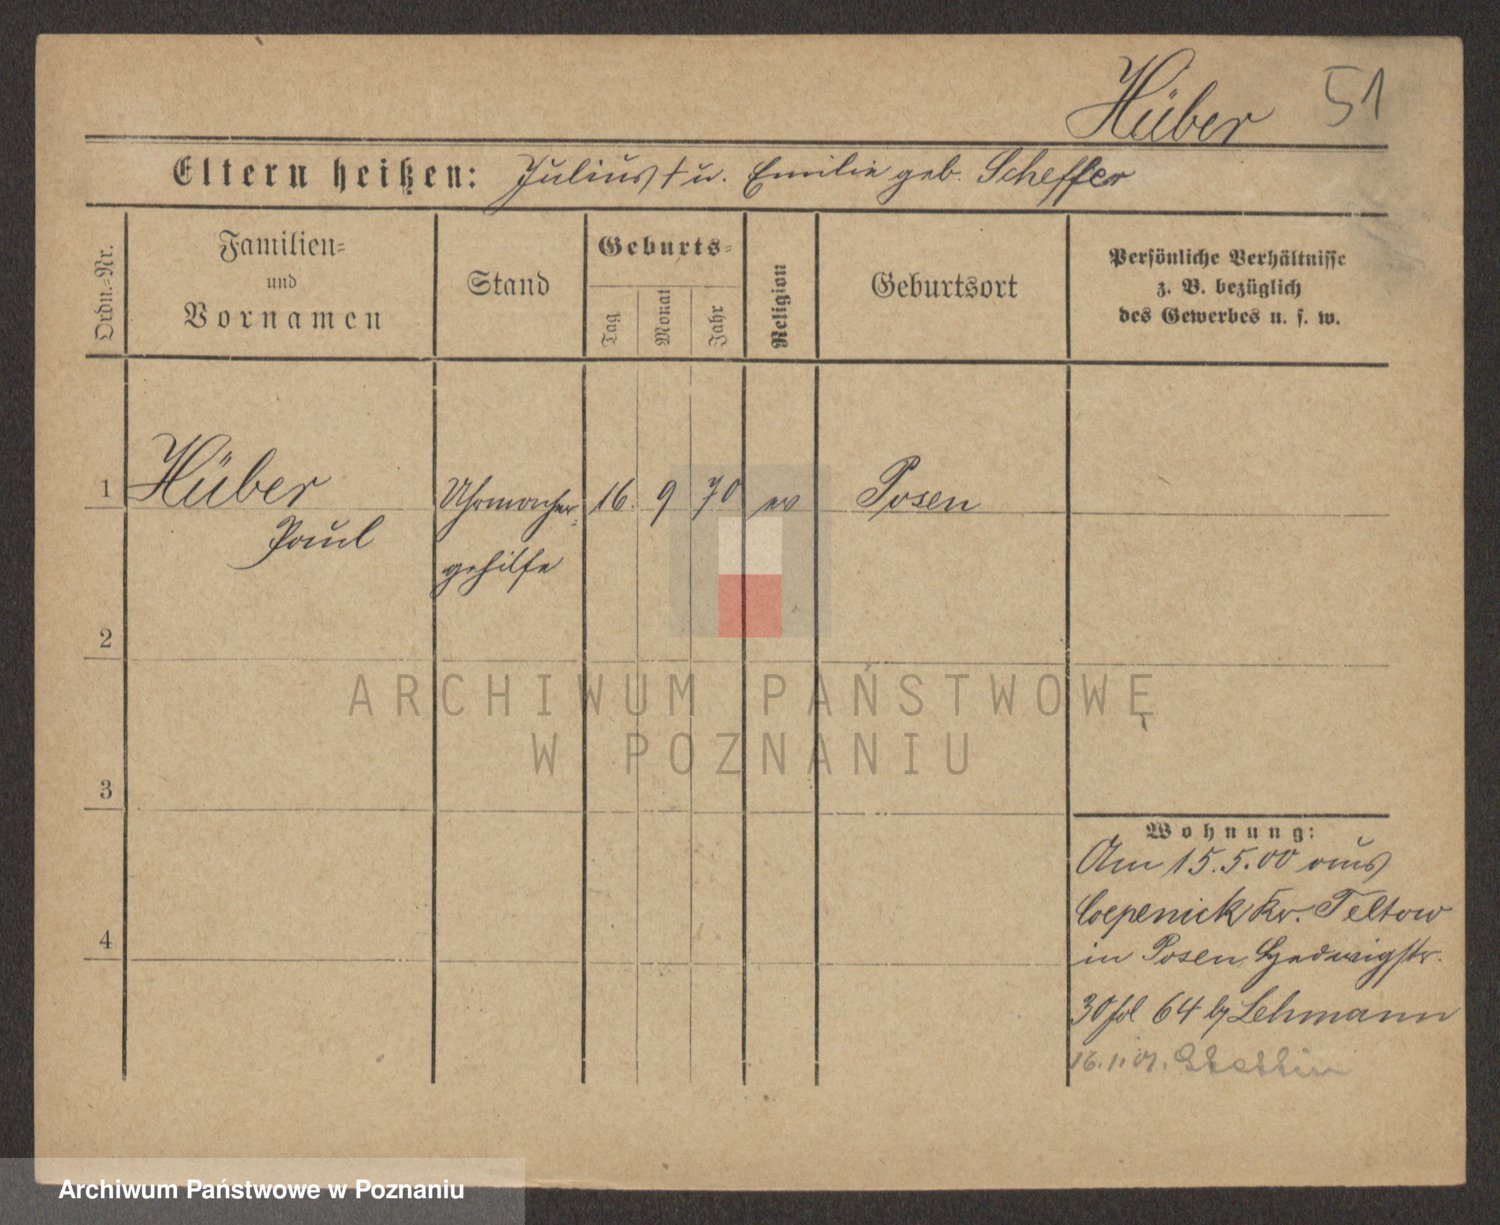 Hüber 51
Eltern heißen: Julius † u. Emilie geb. Scheffler
Ordn.-Nr.
Familien-
und
Vornamen
Stand
Geburts-
Tag
Monat
Jahr
Religion
Geburtsort
Persönliche Verhältnisse
z. B. bezüglich
des Gewerbes u. s. w.
1 Hüber Uhrmacher- 16. 9 70 ev Posen
Paul
gehilfe
2
3
4
Wohnung:
Am 15.5.00 aus
Coepenick Kr. Teltow
in Posen Hedwigstr.
30 fol 64 by Lehmann
16.1.01. Stettin
ARCHIWUM PAŃSTWOWE
W POZNANIU
Archiwum Państwowe w Poznaniu